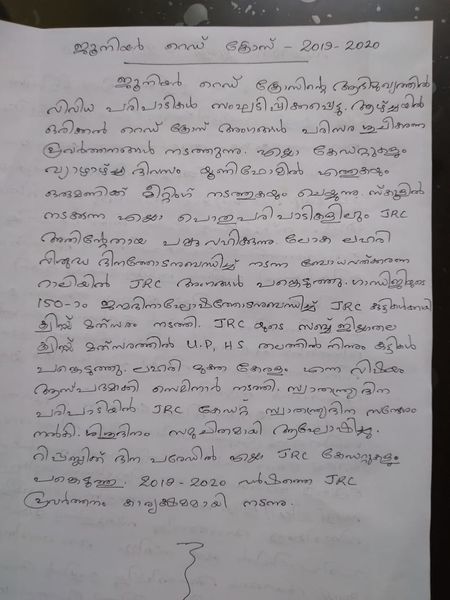 ജൂനിയർ റെഡ് ക്രോസ് - 2019-2020
ജൂനിയർ റെഡ് ക്രോസിന്റെ ആഭിമുഖ്യത്തിൽ
വിവിധ പരിപാടികൾ സംഘടിപ്പിക്കപ്പെട്ടു. ആഴ്ച്ചയിൽ
ഒരിക്കൽ റെഡ് ക്രോസ് അംഗങ്ങൾ പരിസര ശുചീകരണ
പ്രവർത്തനങ്ങൾ നടത്തുന്നു. എല്ലാ കേഡറ്റുകളും
വ്യാഴാഴ്ച്ച ദിവസം യൂണിഫോമിൽ എത്തുകയും
ഒരുമണിക്ക് മീറ്റിംഗ് നടത്തുകയും ചെയ്യുന്നു. സ്കൂളിൽ
നടക്കുന്ന എല്ലാ പൊതുപരിപാടികളിലും JRC
അതിന്റേതായ പങ്കു വഹിക്കുന്നു. ലോക ലഹരി
വിരുദ്ധ ദിനത്തോടനുബന്ധിച്ച് നടന്ന ബോധവത്ക്കരണ
റാലിയിൽ JRC അംഗങ്ങൾ പങ്കെടുത്തു. ഗാന്ധിജിയുടെ
150-ാം ജന്മദിനാഘോഷത്തോടനുബന്ധിച്ച് JRC കുട്ടികൾക്കായി
ക്വിസ്സ് മത്സരം നടത്തി. JRC യുടെ സബ്ബ് ജില്ലാതല
ക്വിസ്സ് മത്സരത്തിൽ U.P, HS തലത്തിൽ നിന്നും കുട്ടികൾ
പങ്കെടുത്തു. ലഹരി മുക്ത കേരളം എന്ന വിഷയം
ആസ്പദമാക്കി സെമിനാർ നടത്തി. സ്വാതന്ത്ര്യ ദിന
പരിപാടിയിൽ JRC കേഡറ്റ് സ്വാതന്ത്ര്യദിന സന്ദേശം
നൽകി. ശിശുദിനം സമുചിതമായി ആഘോഷിച്ചു.
റിപ്പബ്ലിക്ക് ദിന പരേഡിൽ എല്ലാ JRC കേഡറ്റുകളും
പങ്കെടുത്തു. 2019-2020 വർഷത്തെ JRC
പ്രവർത്തനം കാര്യക്ഷമമായി നടന്നു.